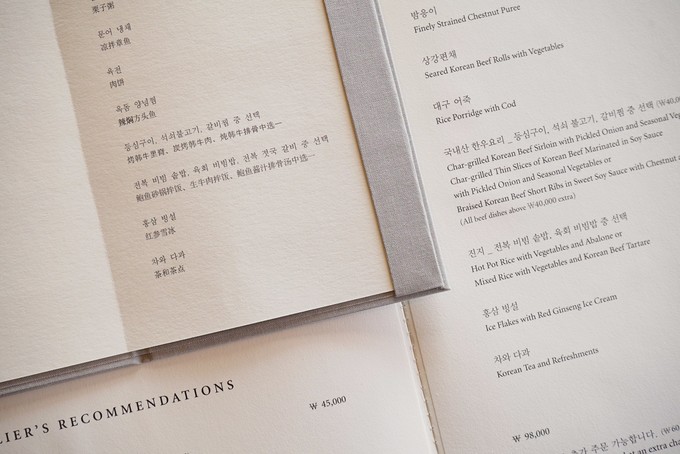 栗子粥
문어 냉채
凉拌章鱼
육전
肉饼
옥돔 양념찜
辣焖方头鱼
등심구이, 석쇠불고기, 갈비찜 중 선택
烤韩牛里脊、炭烤韩牛肉、炖韩牛排骨中选一
전복 비빔 솥밥, 육회 비빔밥, 전복 젓국 갈비 중 선택
鲍鱼砂锅拌饭、生牛肉拌饭、鲍鱼酱汁排骨汤中选一
홍삼 빙설
红参雪冰
차와 다과
茶和茶点
LIER'S RECOMMENDATIONS
₩ 45,000
밤응이
Finely Strained Chestnut Puree
상강편채
Seared Korean Beef Rolls with Vegetables
대구 어죽
Rice Porridge with Cod
국내산 한우요리 _ 등심구이, 석쇠 불고기, 갈비찜 중 선택 (₩40,0
Char-grilled Korean Beef Sirloin with Pickled Onion and Seasonal Veg
Char-grilled Thin Slices of Korean Beef Marinated in Soy Sauce
with Pickled Onion and Seasonal Vegetables or
Braised Korean Beef Short Ribs in Sweet Soy Sauce with Chestnut a
(All beef dishes above ₩40,000 extra)
진지 _ 전복 비빔 솥밥, 육회 비빔밥 중 선택
Hot Pot Rice with Vegetables and Abalone or
Mixed Rice with Vegetables and Korean Beef Tartare
홍삼 빙설
Ice Flakes with Red Ginseng Ice Cream
차와 다과
Korean Tea and Refreshments
₩ 98,000
추가 주문 가능합니다. (₩60
at an extra cha